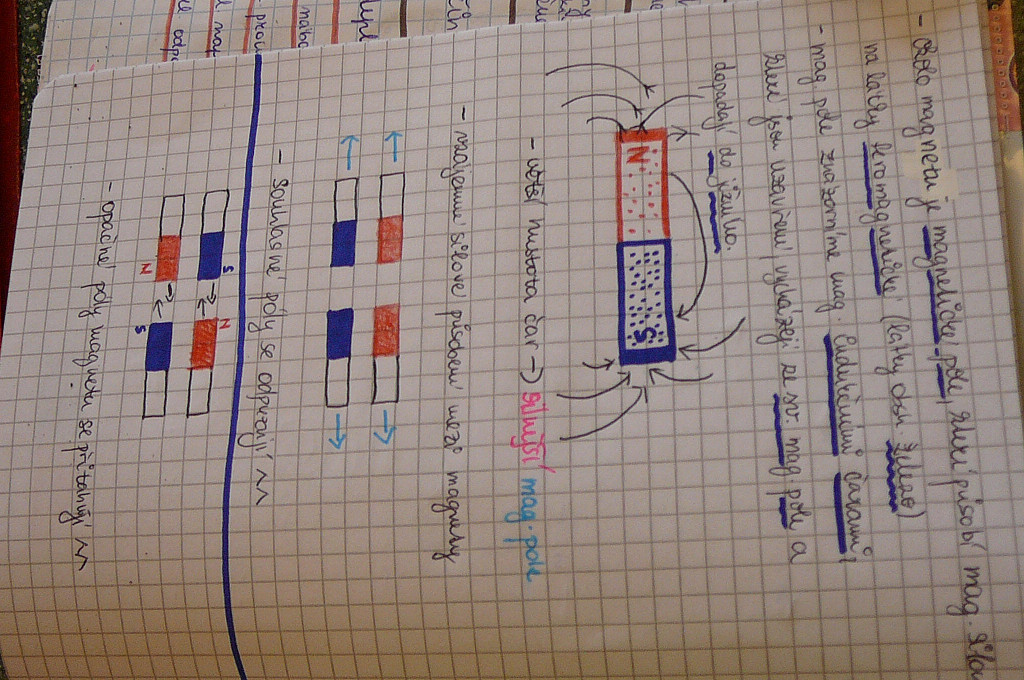 - Okolo magnetu je magnetické pole, které působí mag. silou
na látky feromagnetické (látky obsa. železo)
- mag. pole znázorníme mag. indukčními čarami,
které jsou uzavřené, vycházejí ze sv. mag. pole a
dopadají do jižního.
N
S
- větší hustota čar → silnější mag. pole
- vzájemné silové působení mezi magnety
- Souhlasné póly se odpuzují ^^
S
N
N
S
- opačné póly magnetu se přitahují ^^